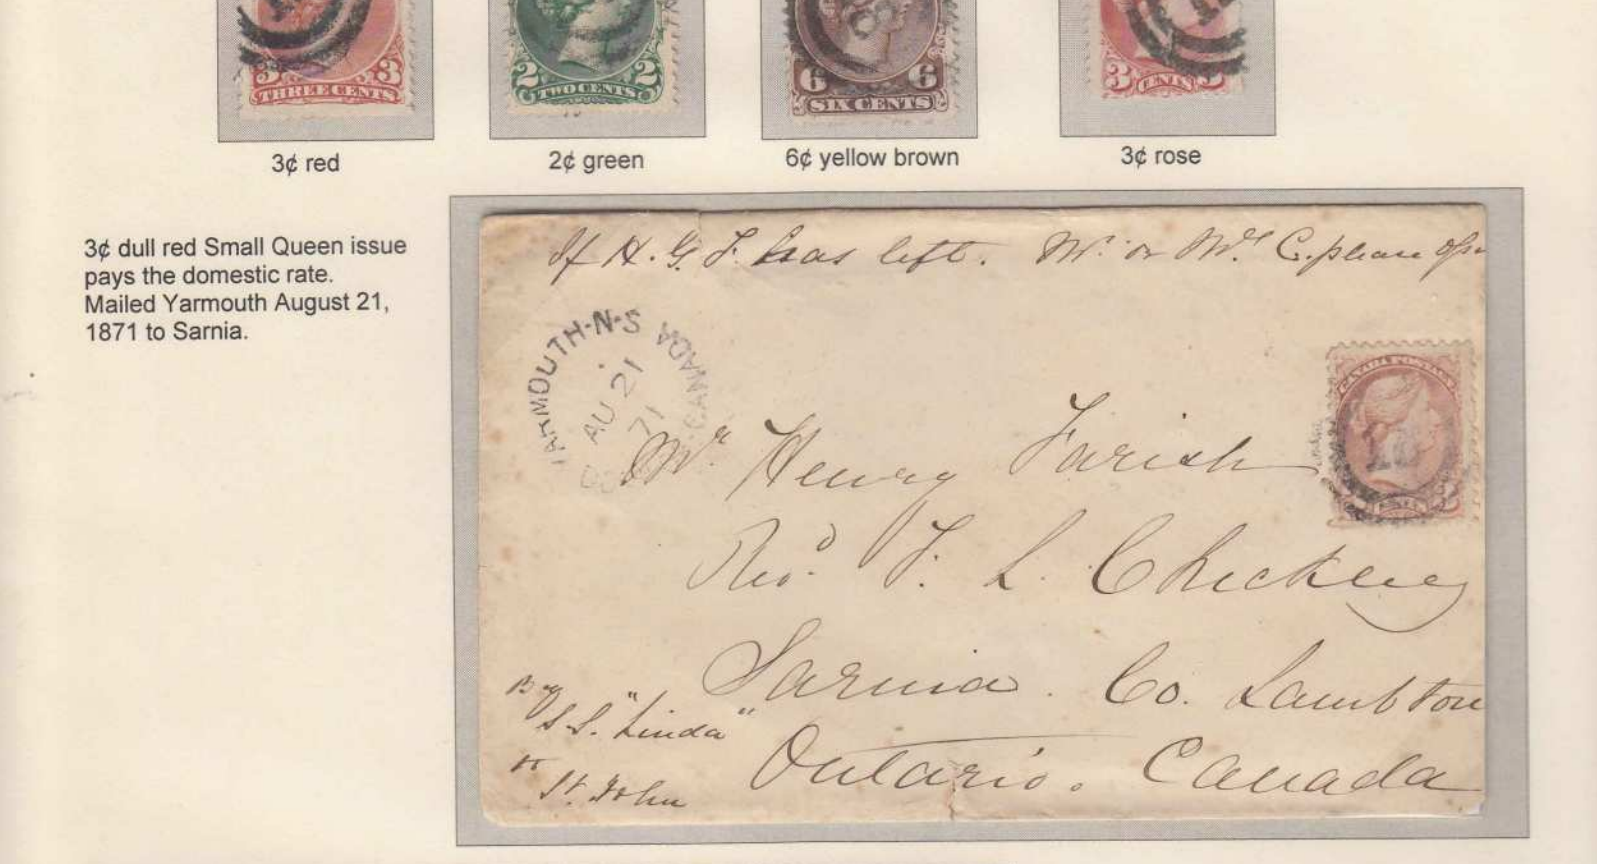 3 3
THREE CENTS
2 2
TWO CENTS
6 6
SIX CENTS
3
CENTS
3¢ red
2¢ green
6¢ yellow brown
3¢ rose
3¢ dull red Small Queen issue
pays the domestic rate.
Mailed Yarmouth August 21,
1871 to Sarnia.
If H. G. F. has left. Mr. or Mrs C. please open
YARMOUTH·N·S
CANADA
AU 21
71
CANADA POSTAGE
Mr. Henry Farish
Revd. F. L. Checkley
Sarnia. Co. Lambton
Ontario. Canada
By
S.S. "Linda"
to
St. John